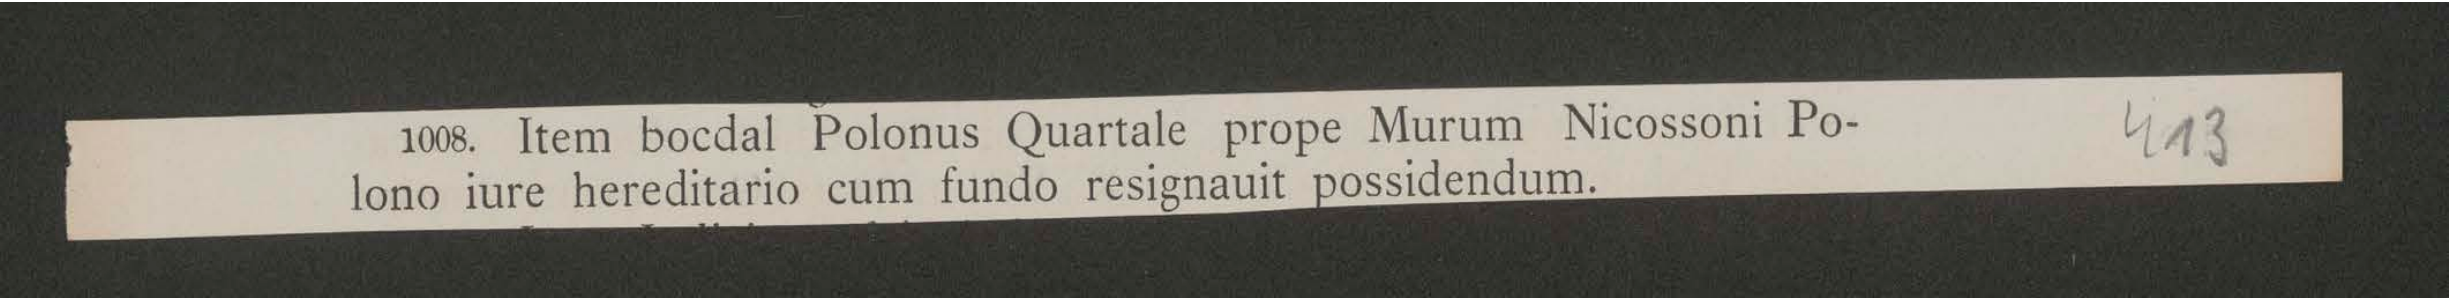 1008. Item bocdal Polonus Quartale prope Murum Nicossoni Po-
lono iure hereditario cum fundo resignauit possidendum.
413